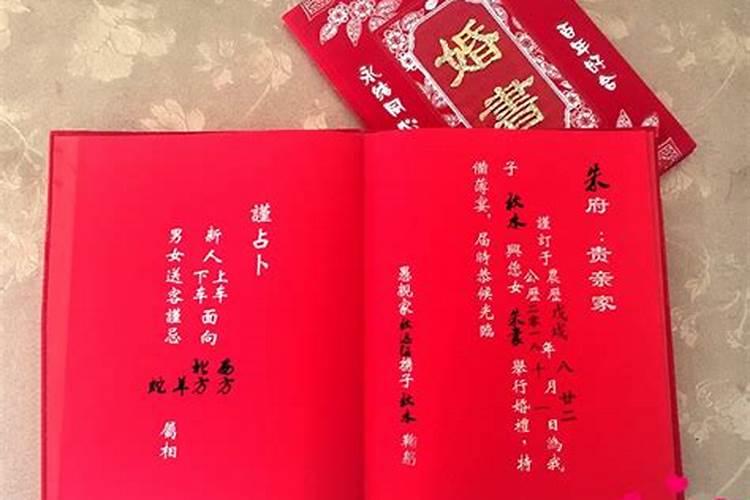 婚書
永結同心
百年好合
朱府：贵亲家
謹訂于農歷戊戌年八月廿二日為我
公歷二零一八 十 一
子秋水與您女朱 舉行婚禮，特
備薄宴，届時恭候光臨
愚親家秋 携子秋水鞠躬
謹占卜
新人上车面向西方
下车 北方
男女送客謹忌
蛇羊
屬相